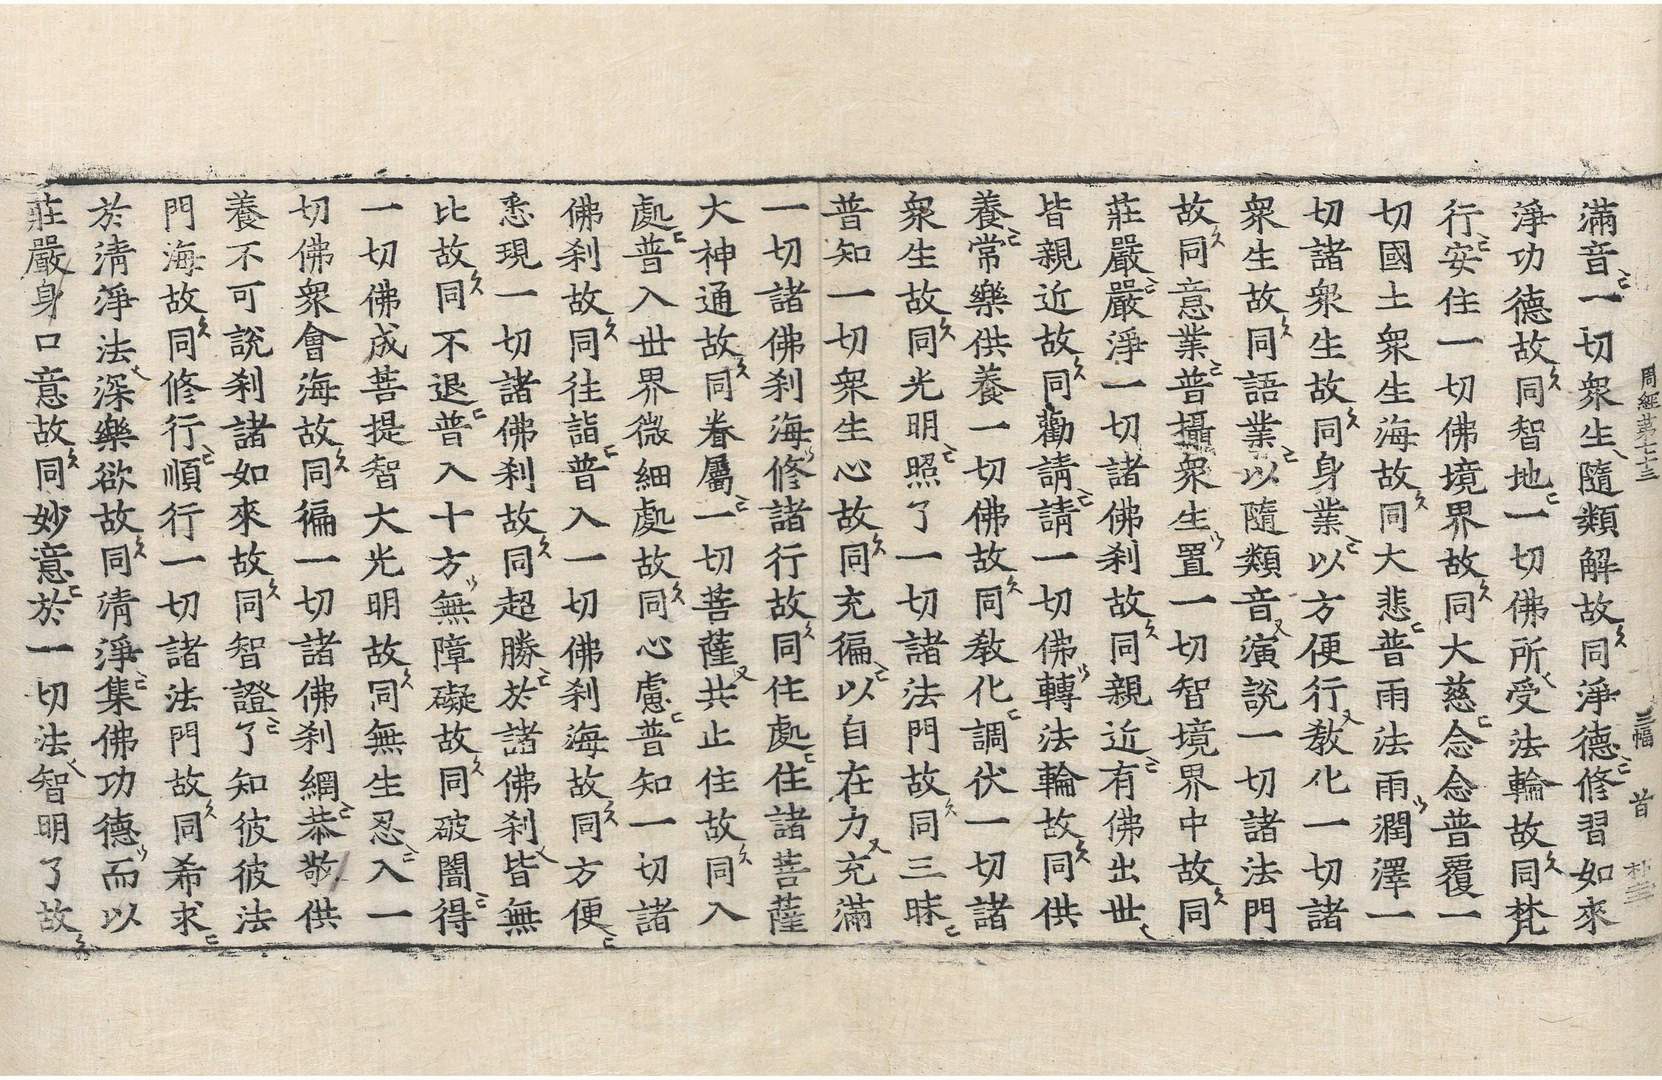 周經第七十三
三幅
首
滿音一切衆生隨類解故同淨德修習如來
淨功德故同智地一切佛所受法輪故同梵
行安住一切佛境界故同大慈念念普覆一
切國土衆生海故同大悲普雨法雨潤澤一
切諸衆生故同身業以方便行敎化一切諸
衆生故同語業以隨類音演說一切諸法門
故同意業普攝衆生置一切智境界中故同
莊嚴嚴淨一切諸佛刹故同親近有佛出世
皆親近故同勸請請一切佛轉法輪故同供
養常樂供養一切佛故同敎化調伏一切諸
衆生故同光明照了一切諸法門故同三昧
普知一切衆生心故同充徧以自在力充滿
一切諸佛刹海修諸行故同住處住諸菩薩
大神通故同眷屬一切菩薩共止住故同入
處普入世界微細處故同心慮普知一切諸
佛刹故同往詣普入一切佛刹海故同方便
悉現一切諸佛刹故同超勝於諸佛刹皆無
比故同不退普入十方無障礙故同破闇得
一切佛成菩提智大光明故同無生忍入一
切佛衆會海故同徧一切諸佛刹網恭敬供
養不可說刹諸如來故同智證了知彼彼法
門海故同修行順行一切諸法門故同希求
於清淨法深樂欲故同清淨集佛功德而以
莊嚴身口意故同妙意於一切法智明了故